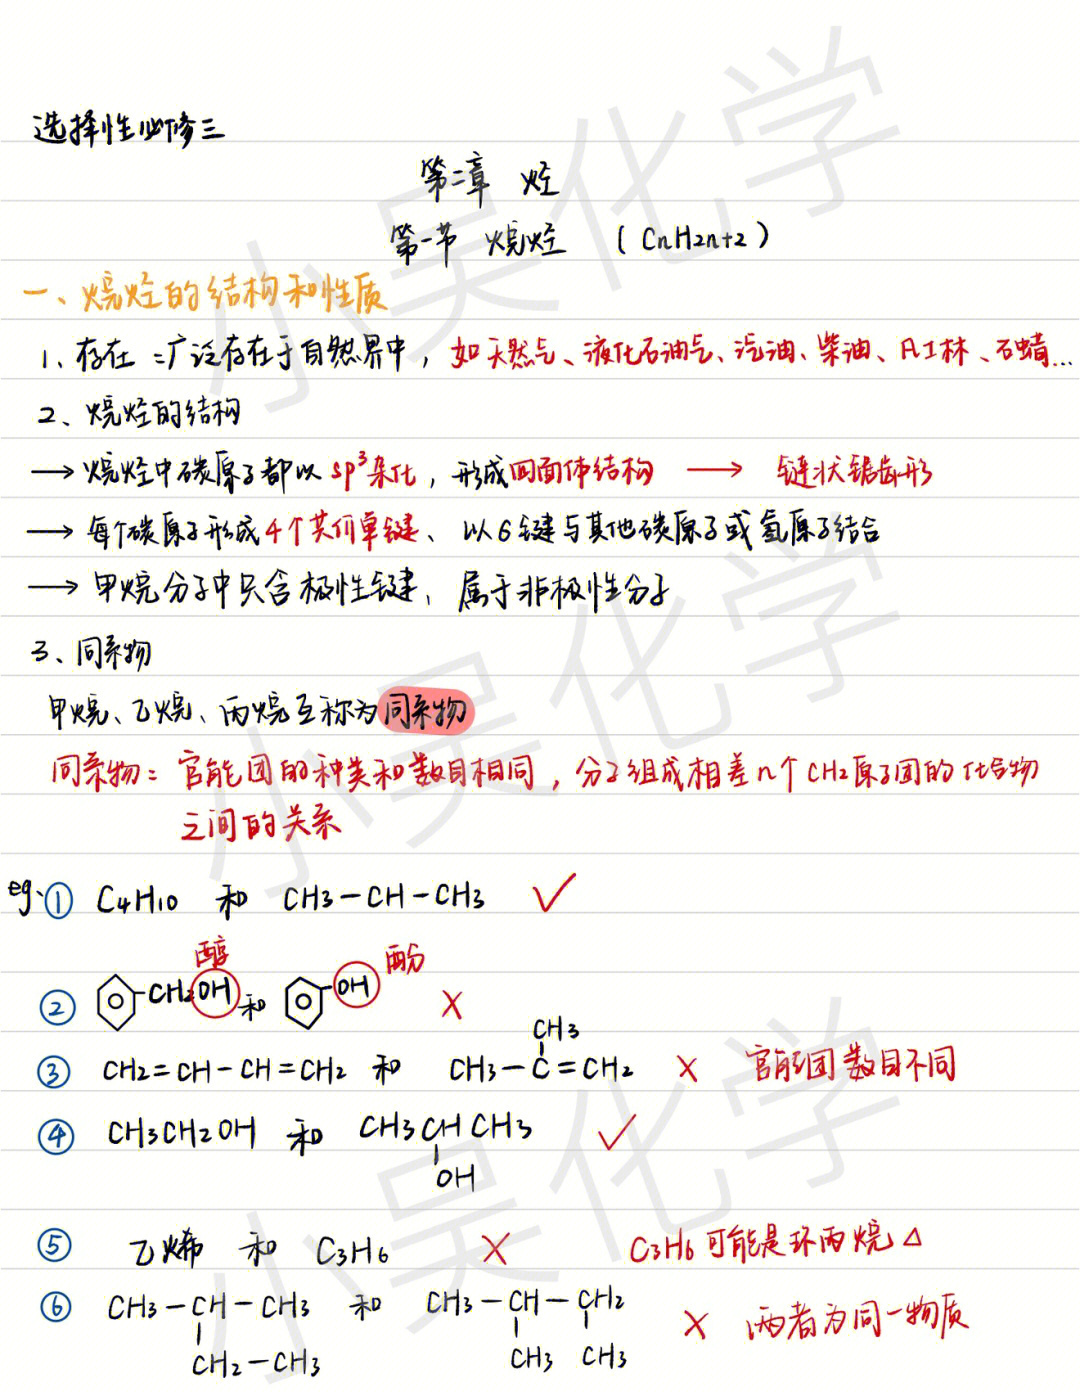 选择性必修三
第二章 烃
第一节 烷烃 (CnH2n+2)
一、烷烃的结构和性质
1、存在：广泛存在于自然界中，如天然气、液化石油气、汽油、柴油、凡士林、石蜡...
2、烷烃的结构
→ 烷烃中碳原子都以sp³杂化，形成四面体结构 → 链状锯齿形
→ 每个碳原子形成4个共价单键、以σ键与其他碳原子或氢原子结合
→ 甲烷分子中只含极性键，属于非极性分子
3、同系物
甲烷、乙烷、丙烷互称为同系物
同系物：官能团的种类和数目相同，分子组成相差n个CH2原子团的化合物
之间的关系
eg.① C4H10 和 CH3-CH-CH3 ✓
醇 酚
② -CH2OH 和 -OH ×
CH3
③ CH2=CH-CH=CH2 和 CH3-C=CH2 × 官能团数目不同
④ CH3CH2OH 和 CH3CHCH3 ✓
OH
⑤ 乙烯 和 C3H6 × C3H6可能是环丙烷△
⑥ CH3-CH-CH3 和 CH3-CH-CH2 × 两者为同一物质
CH2-CH3 CH3 CH3
小吴化学
小吴化学
小吴化学